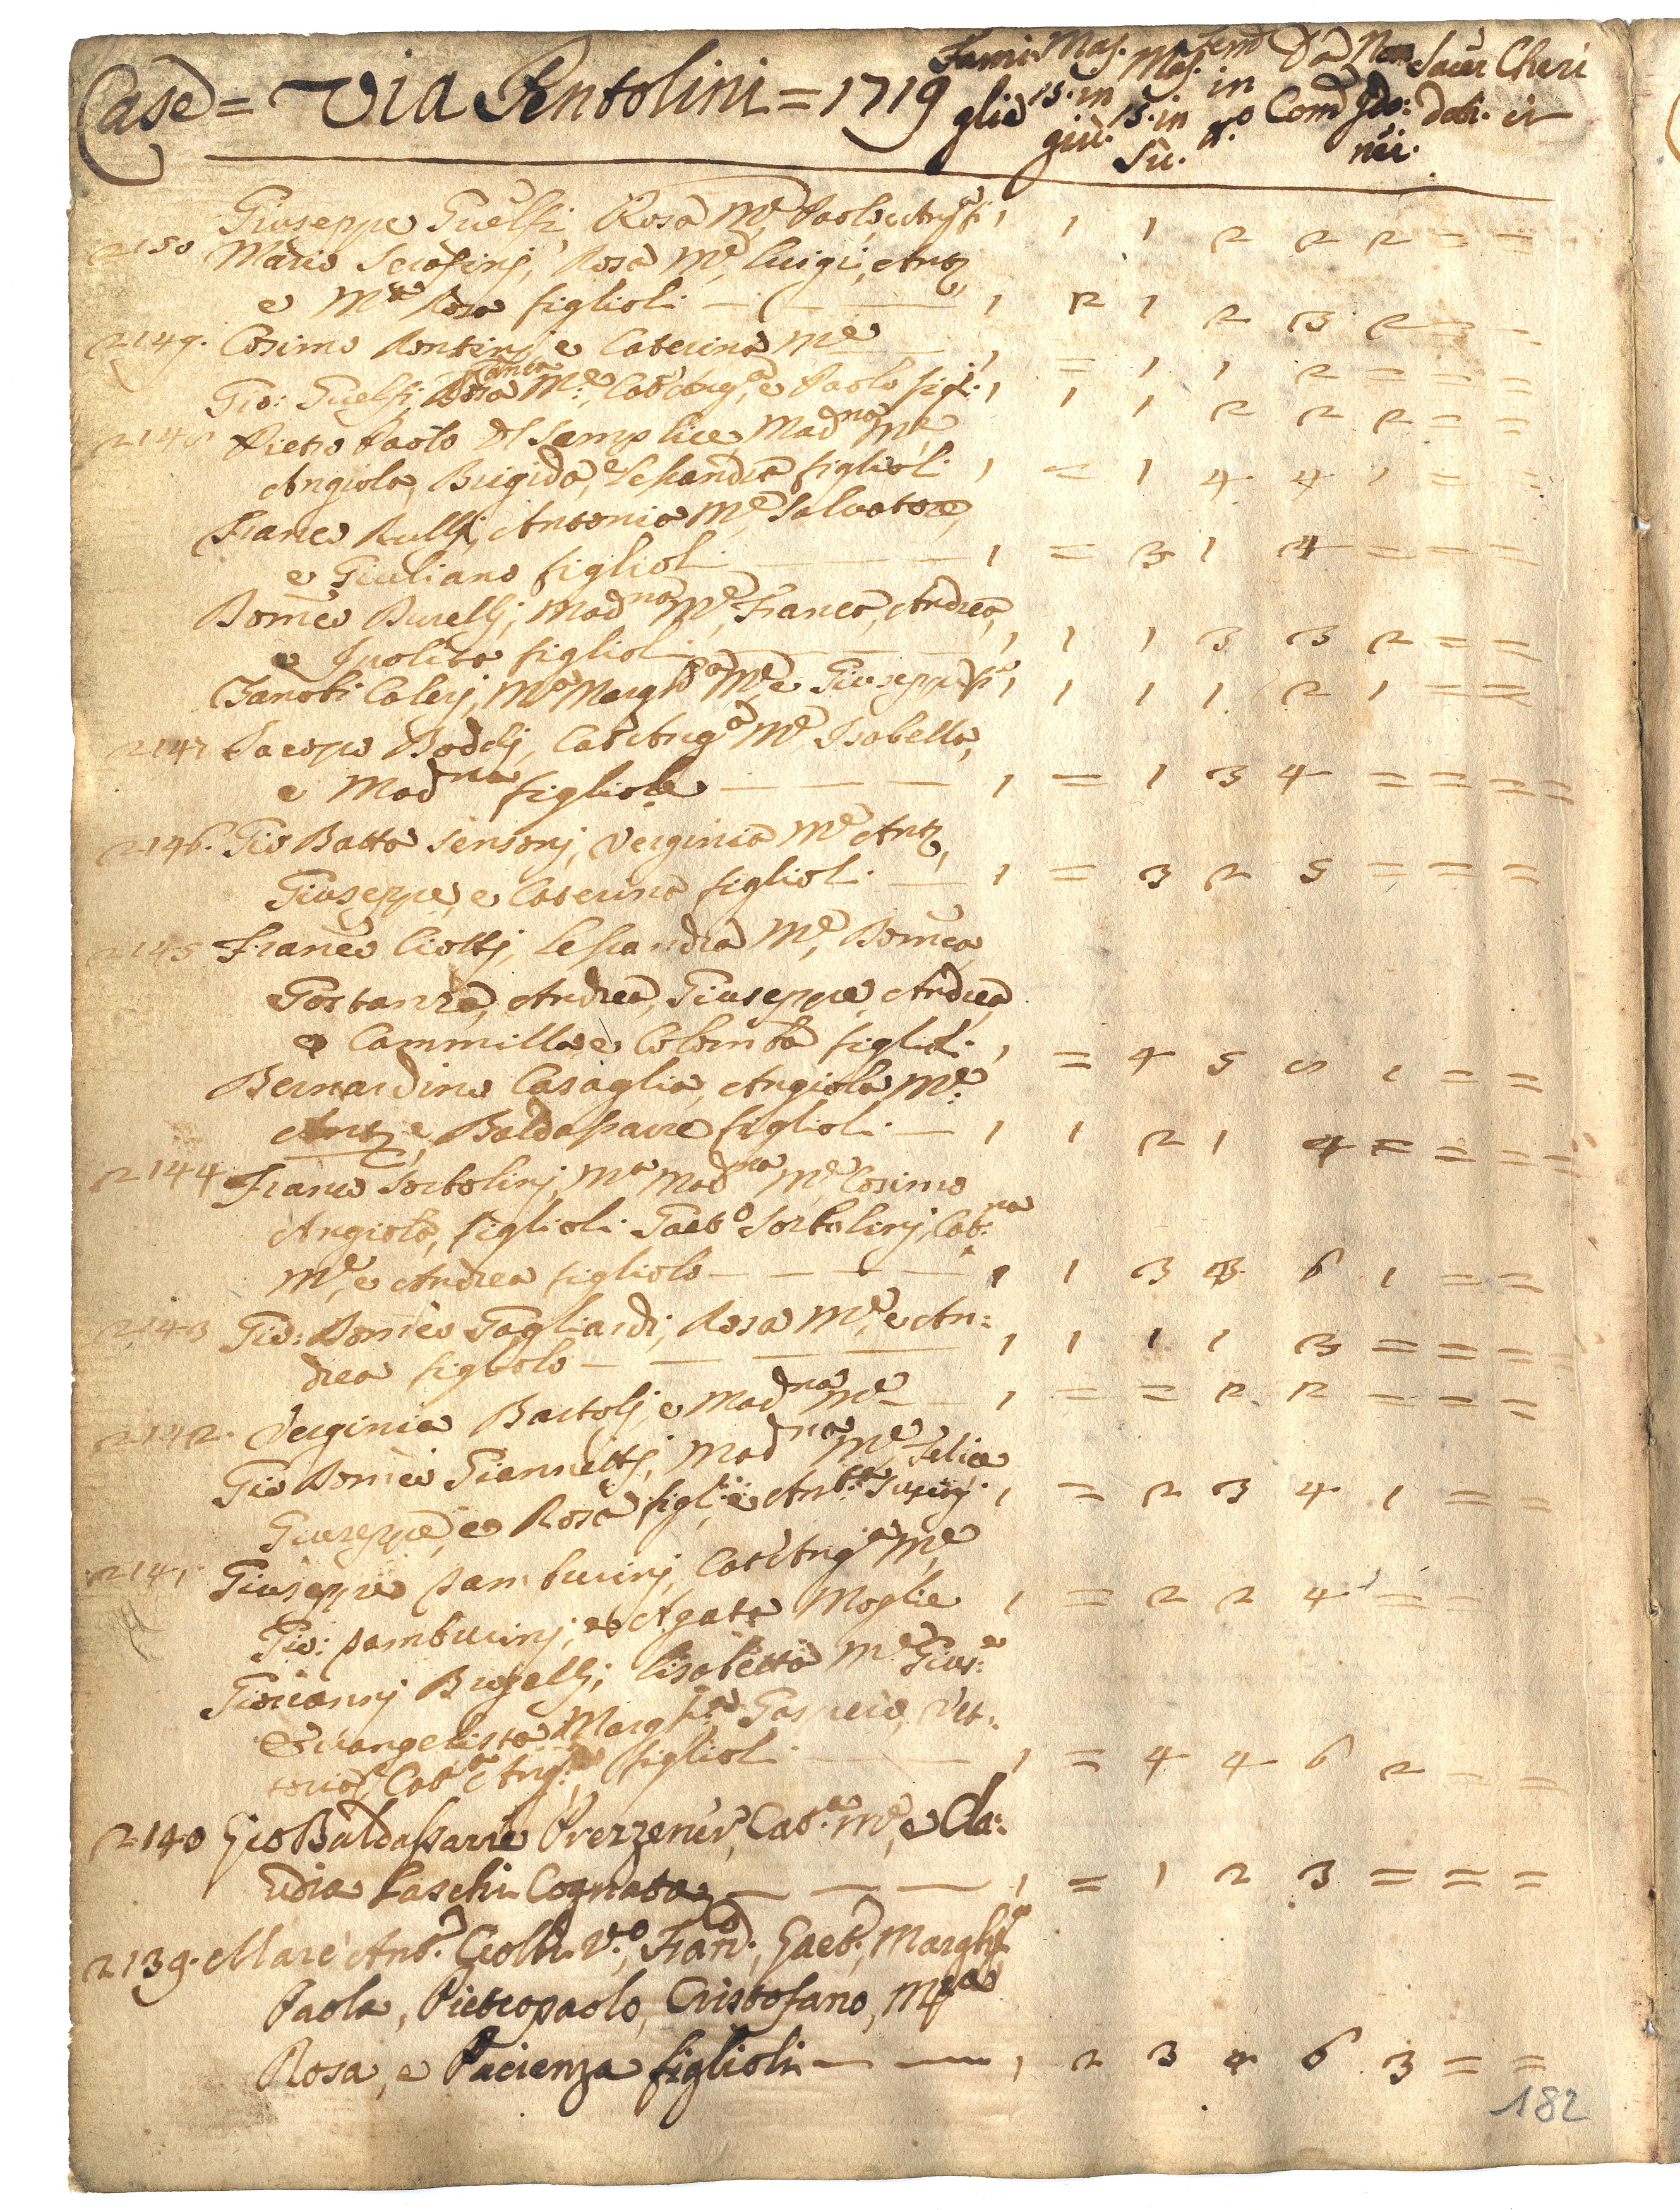 Case = Via Pentolini = 1719 Fami= glie Mas. 15. in giù. Mas. 15. in Su. Fem in n.o Da Com Non Com= nii. Sacer doti. Cheri ci
Giuseppe Guelfi, Rosa M.e Paolo e Ang.a fi 1 1 1 2 2 2 = =
2150 Mario Serafinj, Rosa M.e, Luigi, Ant.o
e M.a Rosa figlioli — — 1 2 1 2 3 2 = =
2149. Cosimo Rontinj e Caterina M.e 1 = 1 1 2 = = =
Gio: Guelfi, Fran.ca Rosa M.e, Cat.a Ang.a, e Paolo figl. 1 1 1 2 2 2 = =
2148 Pietro Paolo del Semplice Mad.na M.e
Angiola, Brigida, e Lessandra figlioli 1 = 1 4 4 1 = =
Fran.co Rullj, Antonia M.e, Salvatore,
e Giuliano figlioli — — 1 = 3 1 4 = = =
Dom.co Burellj, Mad.na M.e, Fran.ca, Andrea,
e Ipolita figlioli 1 1 1 3 3 2 = =
Zanobi Calerj, M.a Margh.a M.e e Giuseppe fi 1 1 1 1 2 1 = =
2147 Jacopo Boddj, Cat.a Ang.a M.e, Isabella,
e Mad.na figliole — — — 1 = 1 3 4 = = = =
2146. Gio Batta Sensorj, Verginia M.e Ant.o,
Giuseppe, e Caterina figlioli — 1 = 3 2 5 = = =
2145 Fran.co Ciottj, Lessandra M.e, Dom.ca
Gostanza, Andrea, Giuseppe, Andrea
e Cammilla e Colomba figlioli 1 = 4 5 1 = =
Bernardino Casaglia, Angiola M.e
Ant.o, e Baldassarre figlioli — 1 1 2 1 4 = = = =
2144 Fran.co Sortolinj, M.a Mad.na M.e Cosimo
Angiola, figlioli Gaet.o Sortolinj, Cat.na
M.e, e Andrea figliolo — — — 1 1 3 6 1 = =
2143 Gio: Dom.co Gagliardi, Rosa M.e, e An=
drea figliolo — — — — 1 1 1 1 3 = = = =
2142. Verginia Bartolj, e Mad.na M.e — 1 = = 2 2 = = =
Gio Dom.co Giannettj, Mad.na M.e, Felice
Giuseppe, e Rosa figl.i, e Ant.a 1 = 2 3 4 1 = =
2141. Giuseppe Tamburinj, Cat.a Ang.a M.e
Gio: Tamburinj, e Agata Moglie 1 = 2 2 4 = =
Giovannj Bugellj, Lisabetta M.e Gius.e
Evangelista Margh.a Gaspero, Vit=
toria, Cat.a Ang.a figlioli — — 1 = 4 4 6 2 = =
2140 Gio Baldassarre Prezzener, Cat.a M.e, e Cla=
udia Paschi Cognata — — — 1 = 1 2 3 = = =
2139. Marc Ant.o Ciolli V.o, Fran.o, Gaet.o, Margh.ta
Paola, Pietropaolo, Cristofano, M.a
Rosa, e Pacienza figlioli — — 1 2 3 4 6 3 = =
182